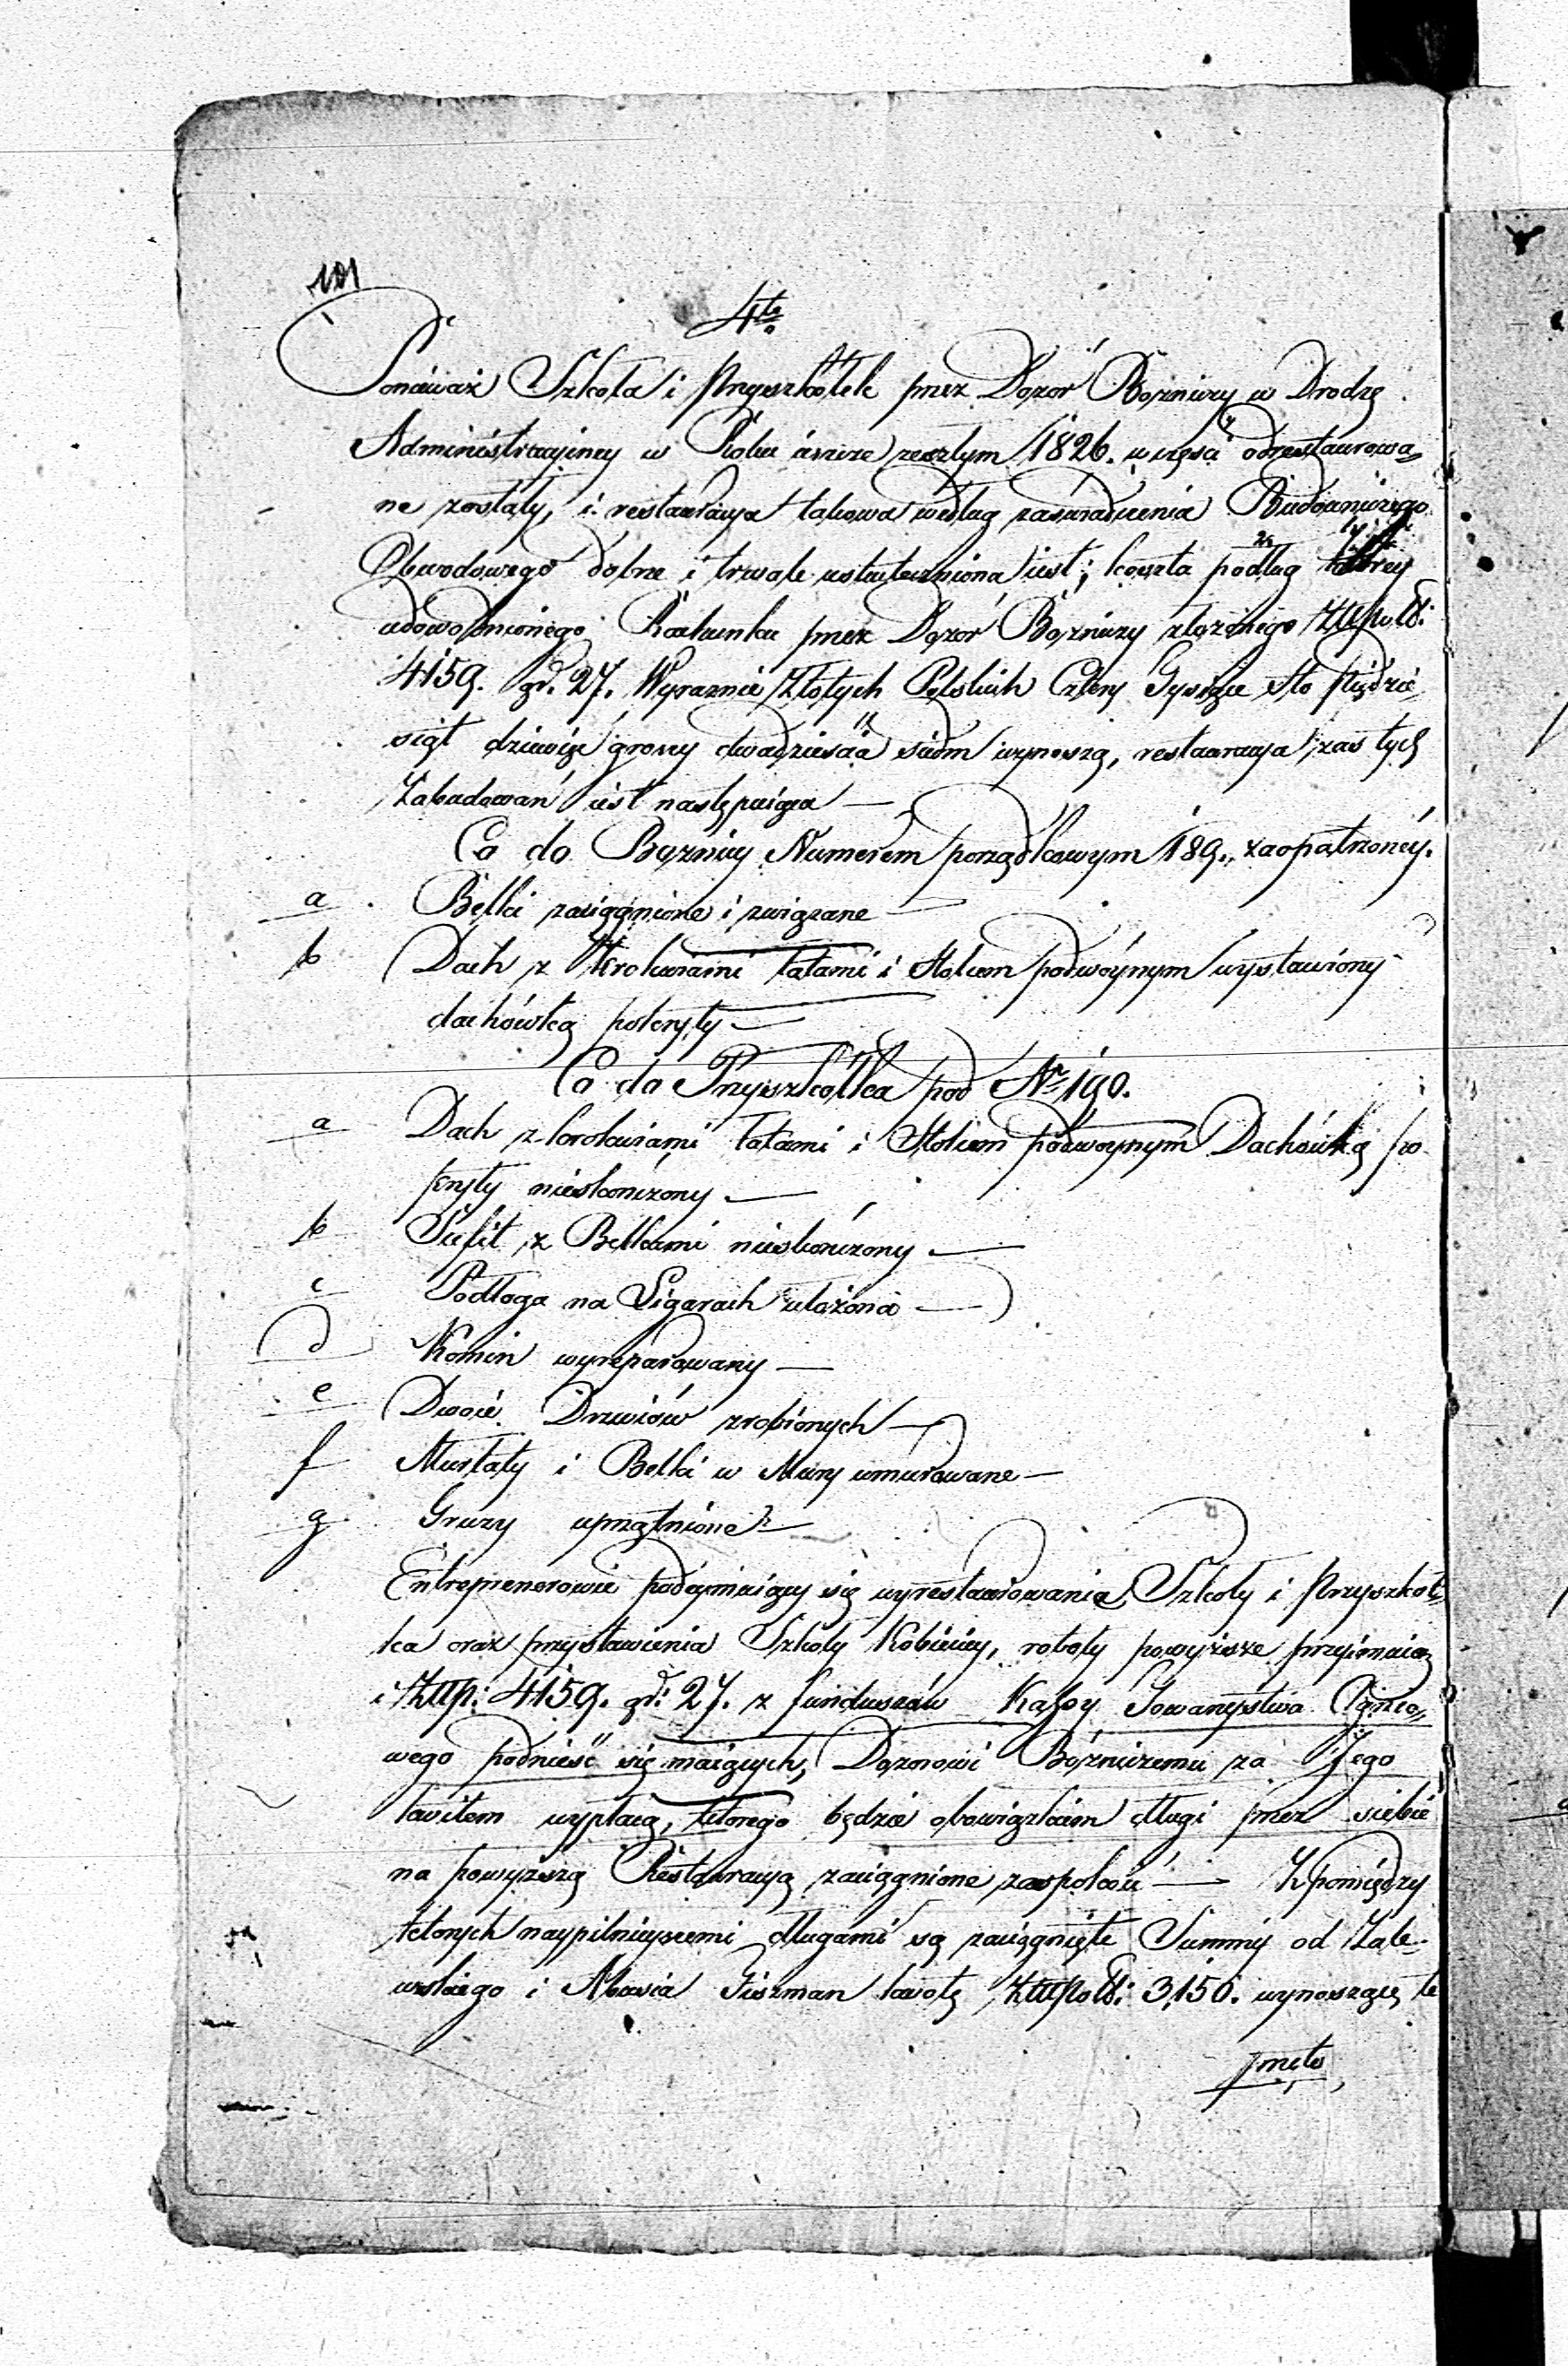 101
4to
Ponieważ Szkoła i Przyszkółek przez Dozór Bożniczy w Drodze
Administracyiney w Roku ieszcze zeszłym 1826. w części odrestaurowa„
ne zostały, i restauracya takowa według zaświadczenia Budowniczego
Obwodowego dobrze i trwale uskuteczniona iest; koszta podług
udowodnionego Rachunku przez Dozór Bóżniczy złożonego Złłpolł:
4159. gr. 27. Wyraznie Złotych Polskich Cztery Tysiące Sto Piędzie„
siąt dziewięć groszy dwadzieścia siedm wynoszą, restauracya zaś tych
Zabudowań iest następuiąca —
Co do Bożnicy Numerem porządkowym 189., zaopatrzonéy.
a Belki zaciągnione i związane —
b Dach z Krokwiami łatami i Stolcem podwóynym wystawiony
dachówką pokryty —
Co do Przyszkółka pod Nr 190.
a Dach z krokwiami łatami i Stolcem podwoynym Dachówką po
kryty nieskończony —
b Sufit z Belkami nieskończony —
c Podłoga na Ligarach ułożona —
d Komin wyreparowany —
e Dwoie Drzwiów zrobionych —
f Murłaty i Belki w Mury wmurowane —
g Gruzy uprzątnione —
Entreprenerowie podeymuiący się wyrestaurowania Szkoły i Przyszkół„
ka oraz przystawienia Szkoły Kobiécey, roboty powyższe przyimuią
i Złłp: 4159. gr: 27. z funduszów Kassy Towarzystwa Ognio„
wego podnieść się maiących, Dozorowi Bóżniczemu za Jego
kwitem wypłacą, którego będzie obowiązkiem długi przez siebie
na powyższą Restauracyą zaciągnione zaspokoić — Z pomiędzy
których naypilnieyszemi długami są zaciągnięte Summy od Zale„
wskiego i Fiszman kwotę Złłpolł: 3,150. wynoszące, te